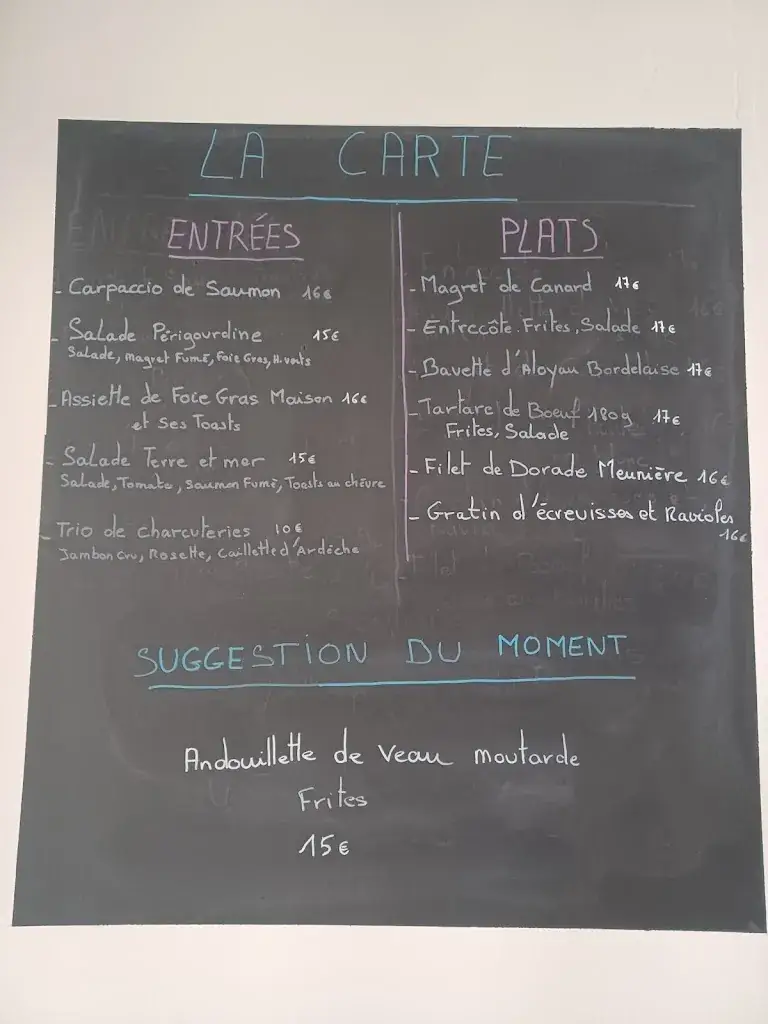 LA CARTE
ENTRÉES
- Carpaccio de Saumon 16€
- Salade Périgourdine 15€
Salade, magret Fumé, Foie Gras, H.verts
- Assiette de Foie Gras Maison 16€
et ses Toasts
- Salade Terre et mer 15€
Salade, Tomate, Saumon Fumé, Toasts au chèvre
- Trio de charcuteries 10€
Jambon Cru, Rosette, Caillette d'Ardèche
PLATS
- Magret de Canard 17€
- Entrecôte. Frites, Salade 17€
- Bavette d'Aloyau Bordelaise 17€
- Tartare de Boeuf 180g 17€
Frites, Salade
- Filet de Dorade Meunière 16€
- Gratin d'écrevisses et Ravioles
16€
SUGGESTION DU MOMENT
Andouillette de Veau moutarde
Frites
15€